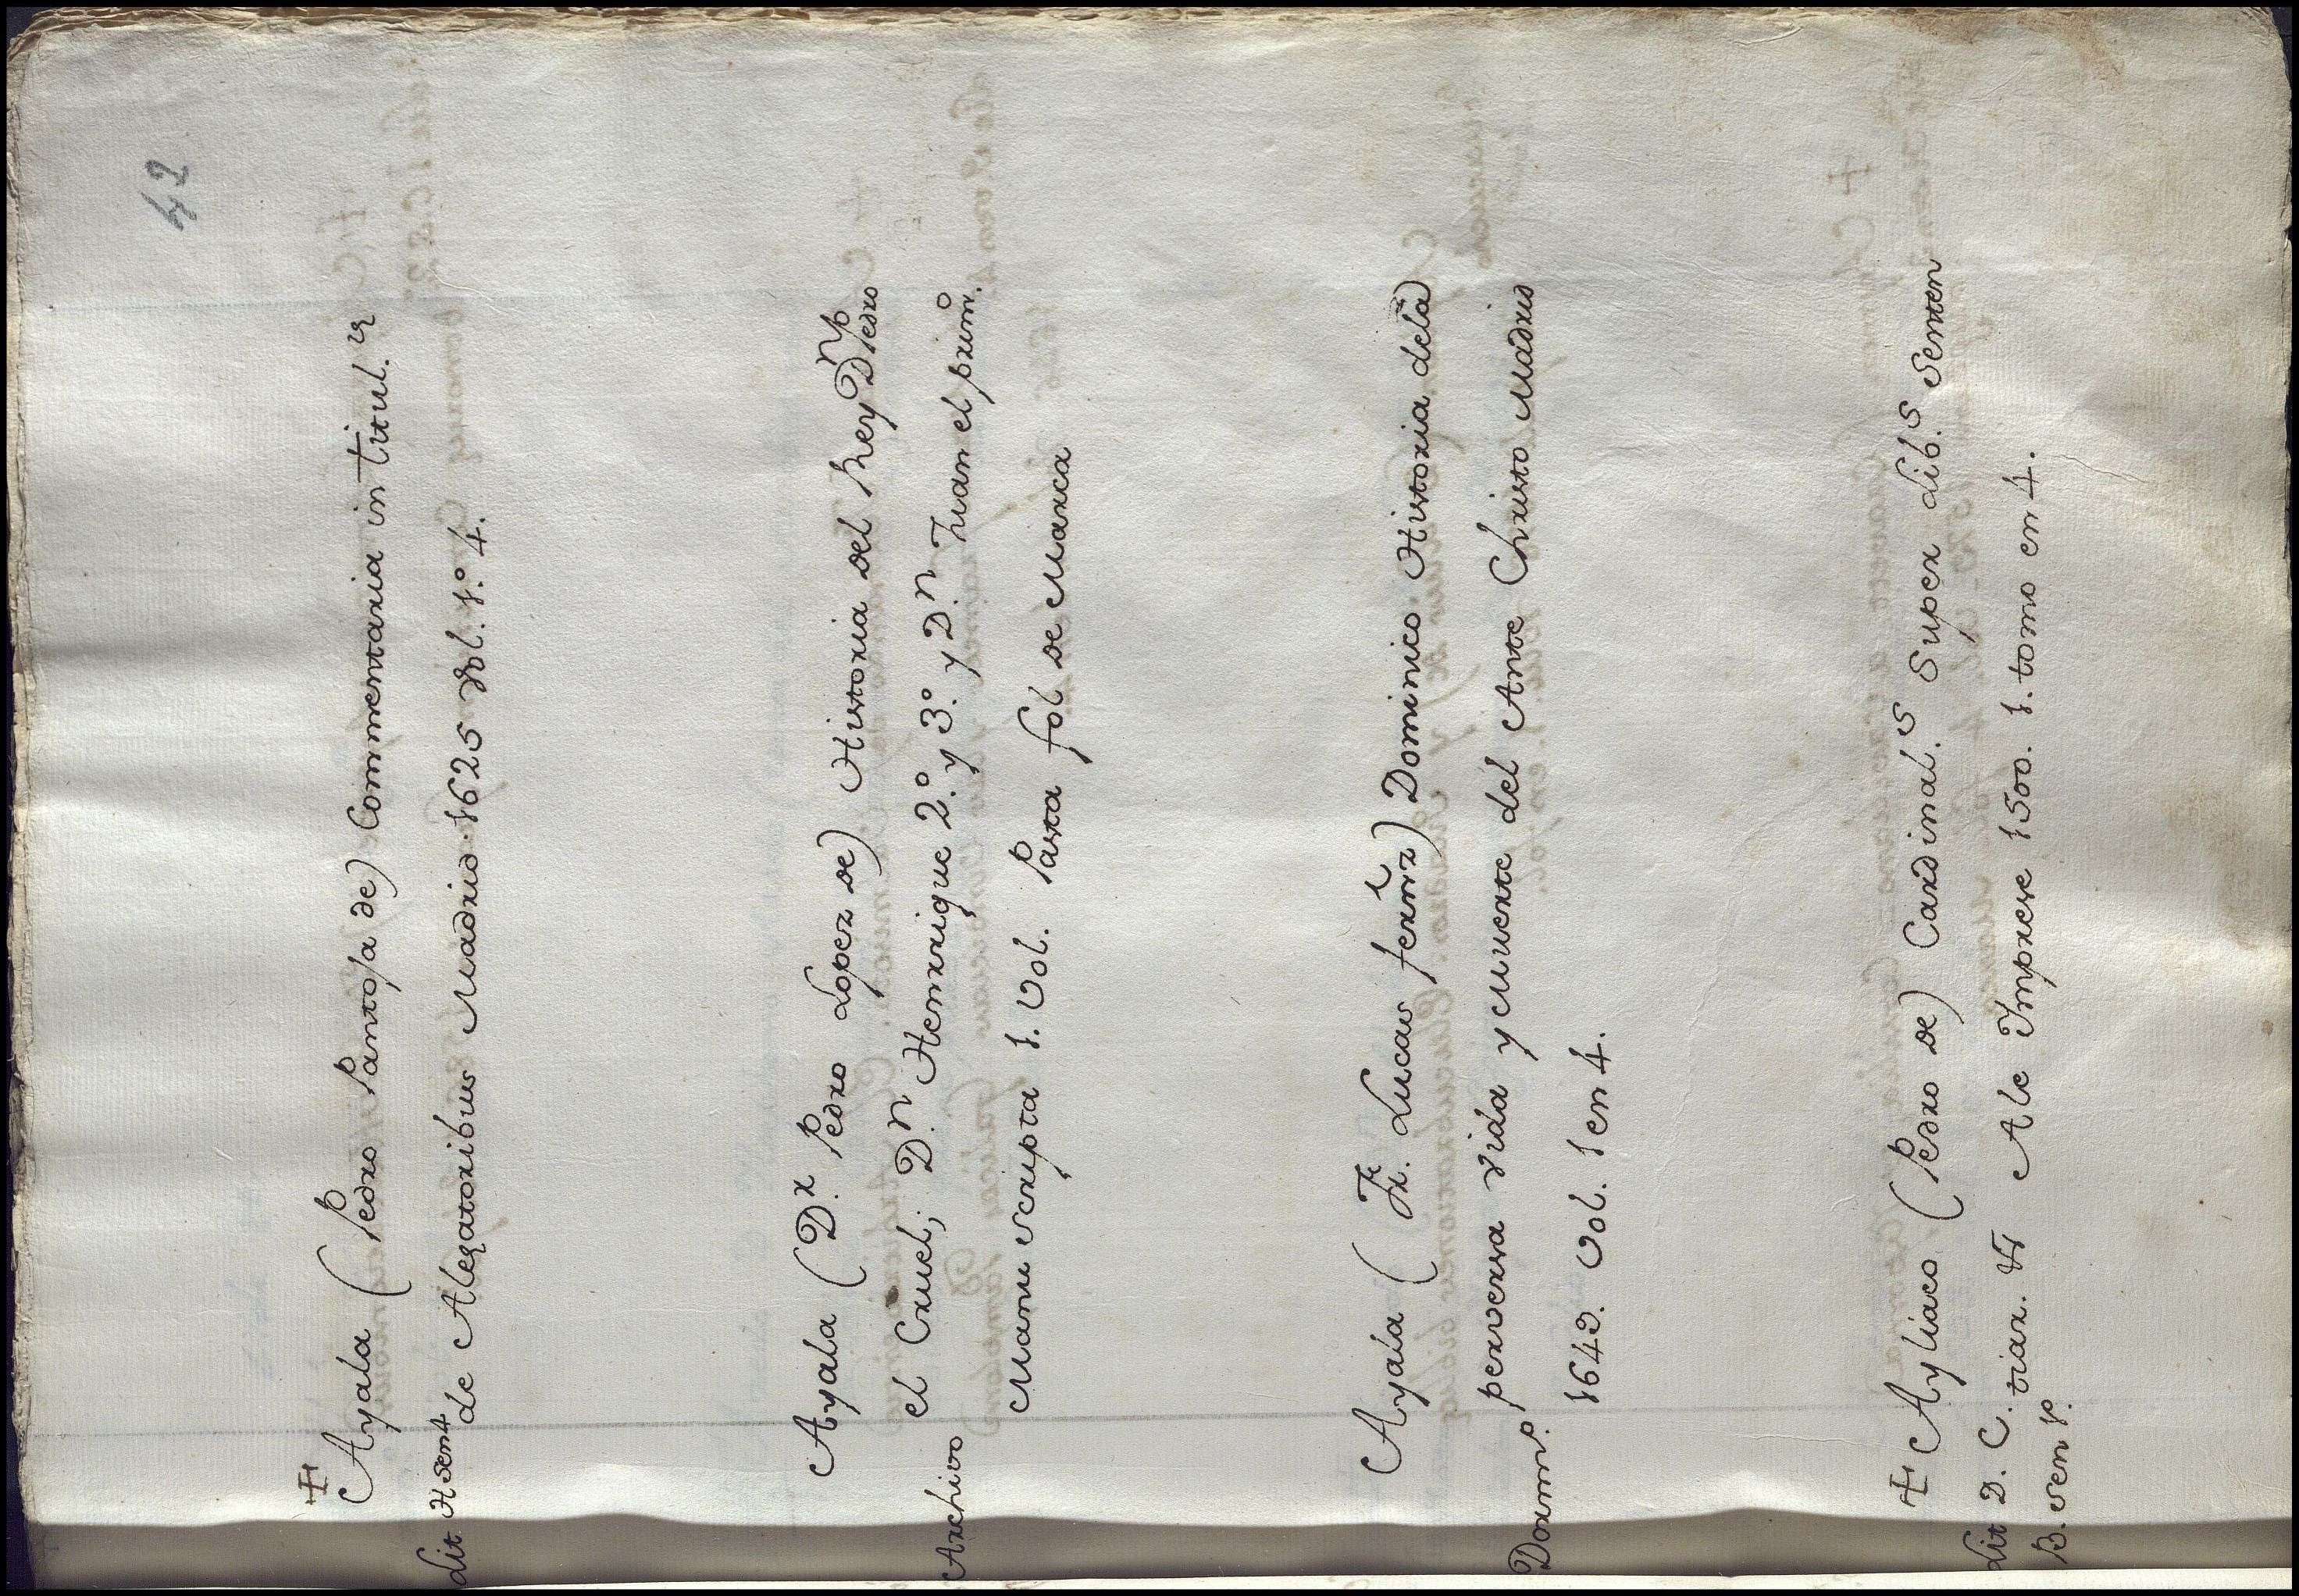 42
Ayala (Pedro Pantosa de) Commentaria in titul.
Lit H sen 4 de Alegatoribus Madrid 1625 Vol. 1.º 4.
Ayala (D.r Pedro Lopez de) Historia del Rey D.n Pedro
Archivo el Cruel; D.n Henrrique 2.º y 3.º y D.n Juan el prim.º
Manu scripta 1. Vol. Pasta fol de Marca
Ayala (Fr. Lucas fernz) Dominico Historia dela
Dorm.º perversa vida y Muerte del Ante Christo Madrid
1649. Vol. 1 en 4.
Ayliaco (Pedro de) Cardinal.s Super Lib.s Senten
Lit D. C. tiar. 4 Ale Imprese 1500. 1. tomo en 4.
B. sen P.